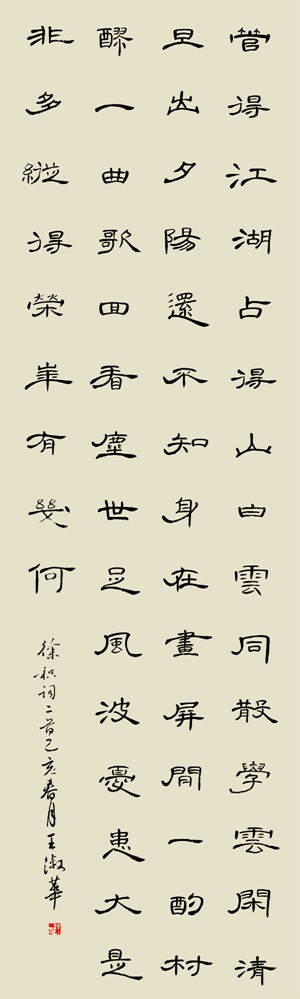 管得江湖占得山白雲同散學雲閑清
旦出夕陽還不知身在畫屏間一酌村
醪一曲歌回看塵世足風波憂患大是
非多縱得榮華有幾何
徐積詞二首己亥春月王淑華